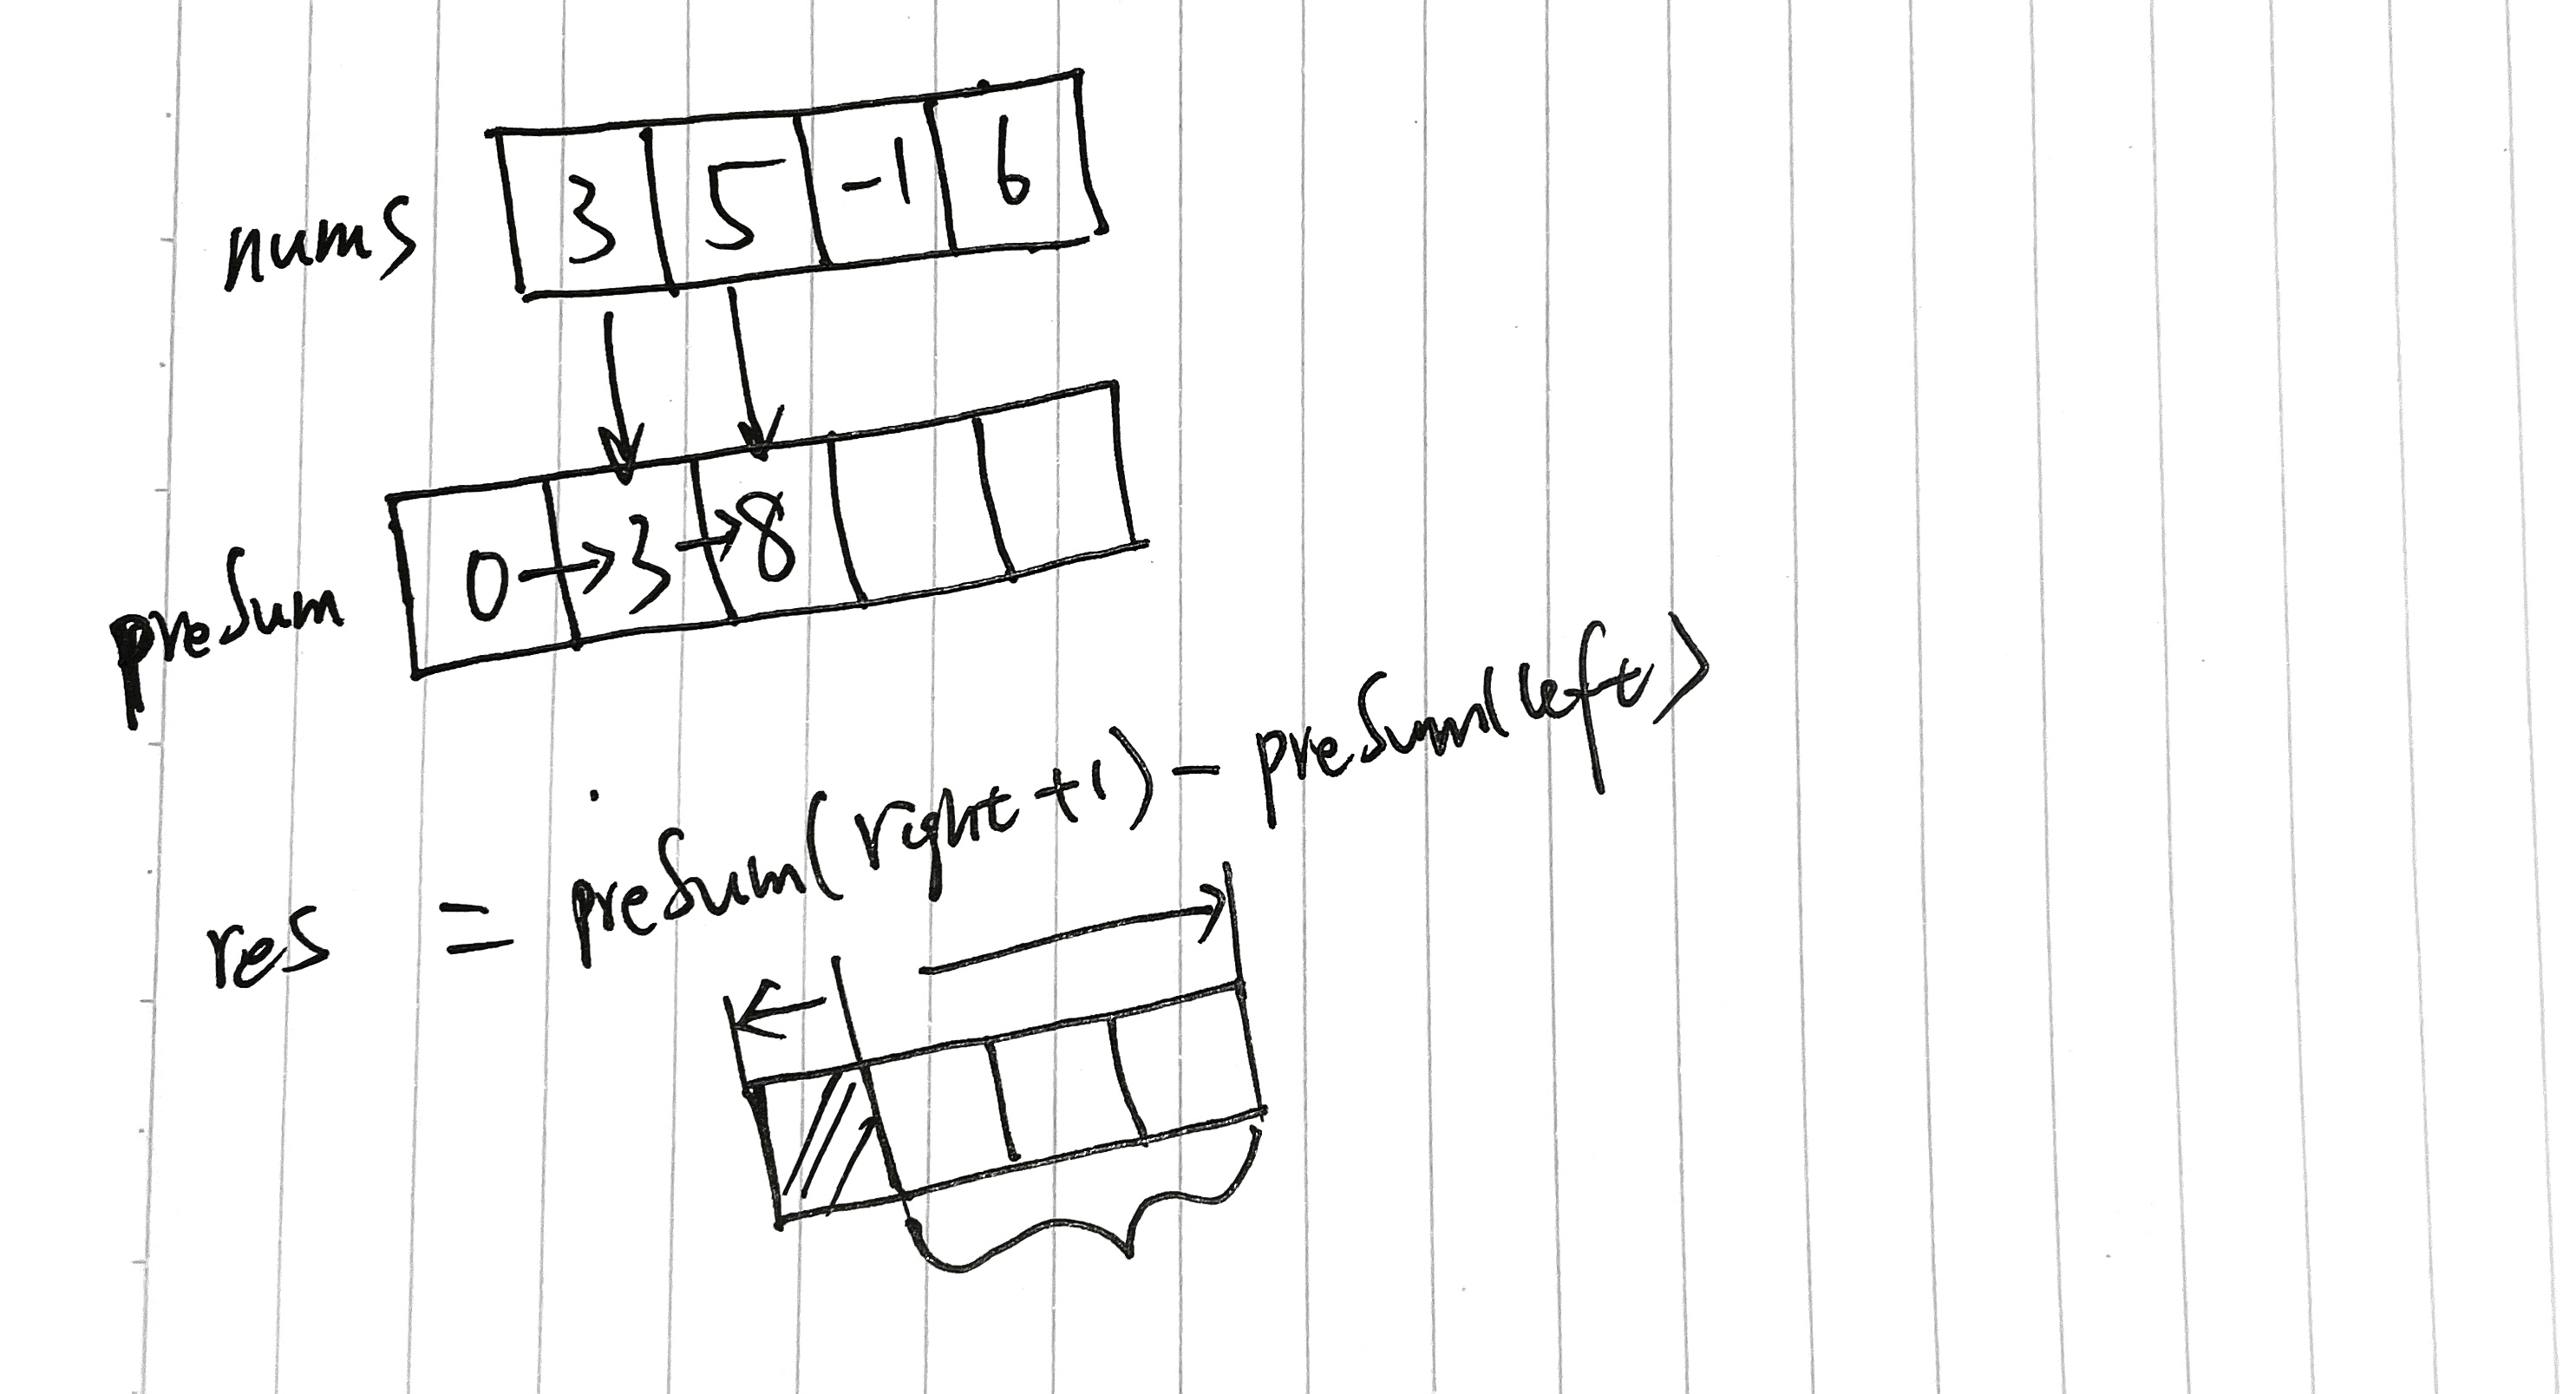 nums 3 5 -1 6
preSum 0 → 3 → 8
res = preSum(right+1) - preSum(left)